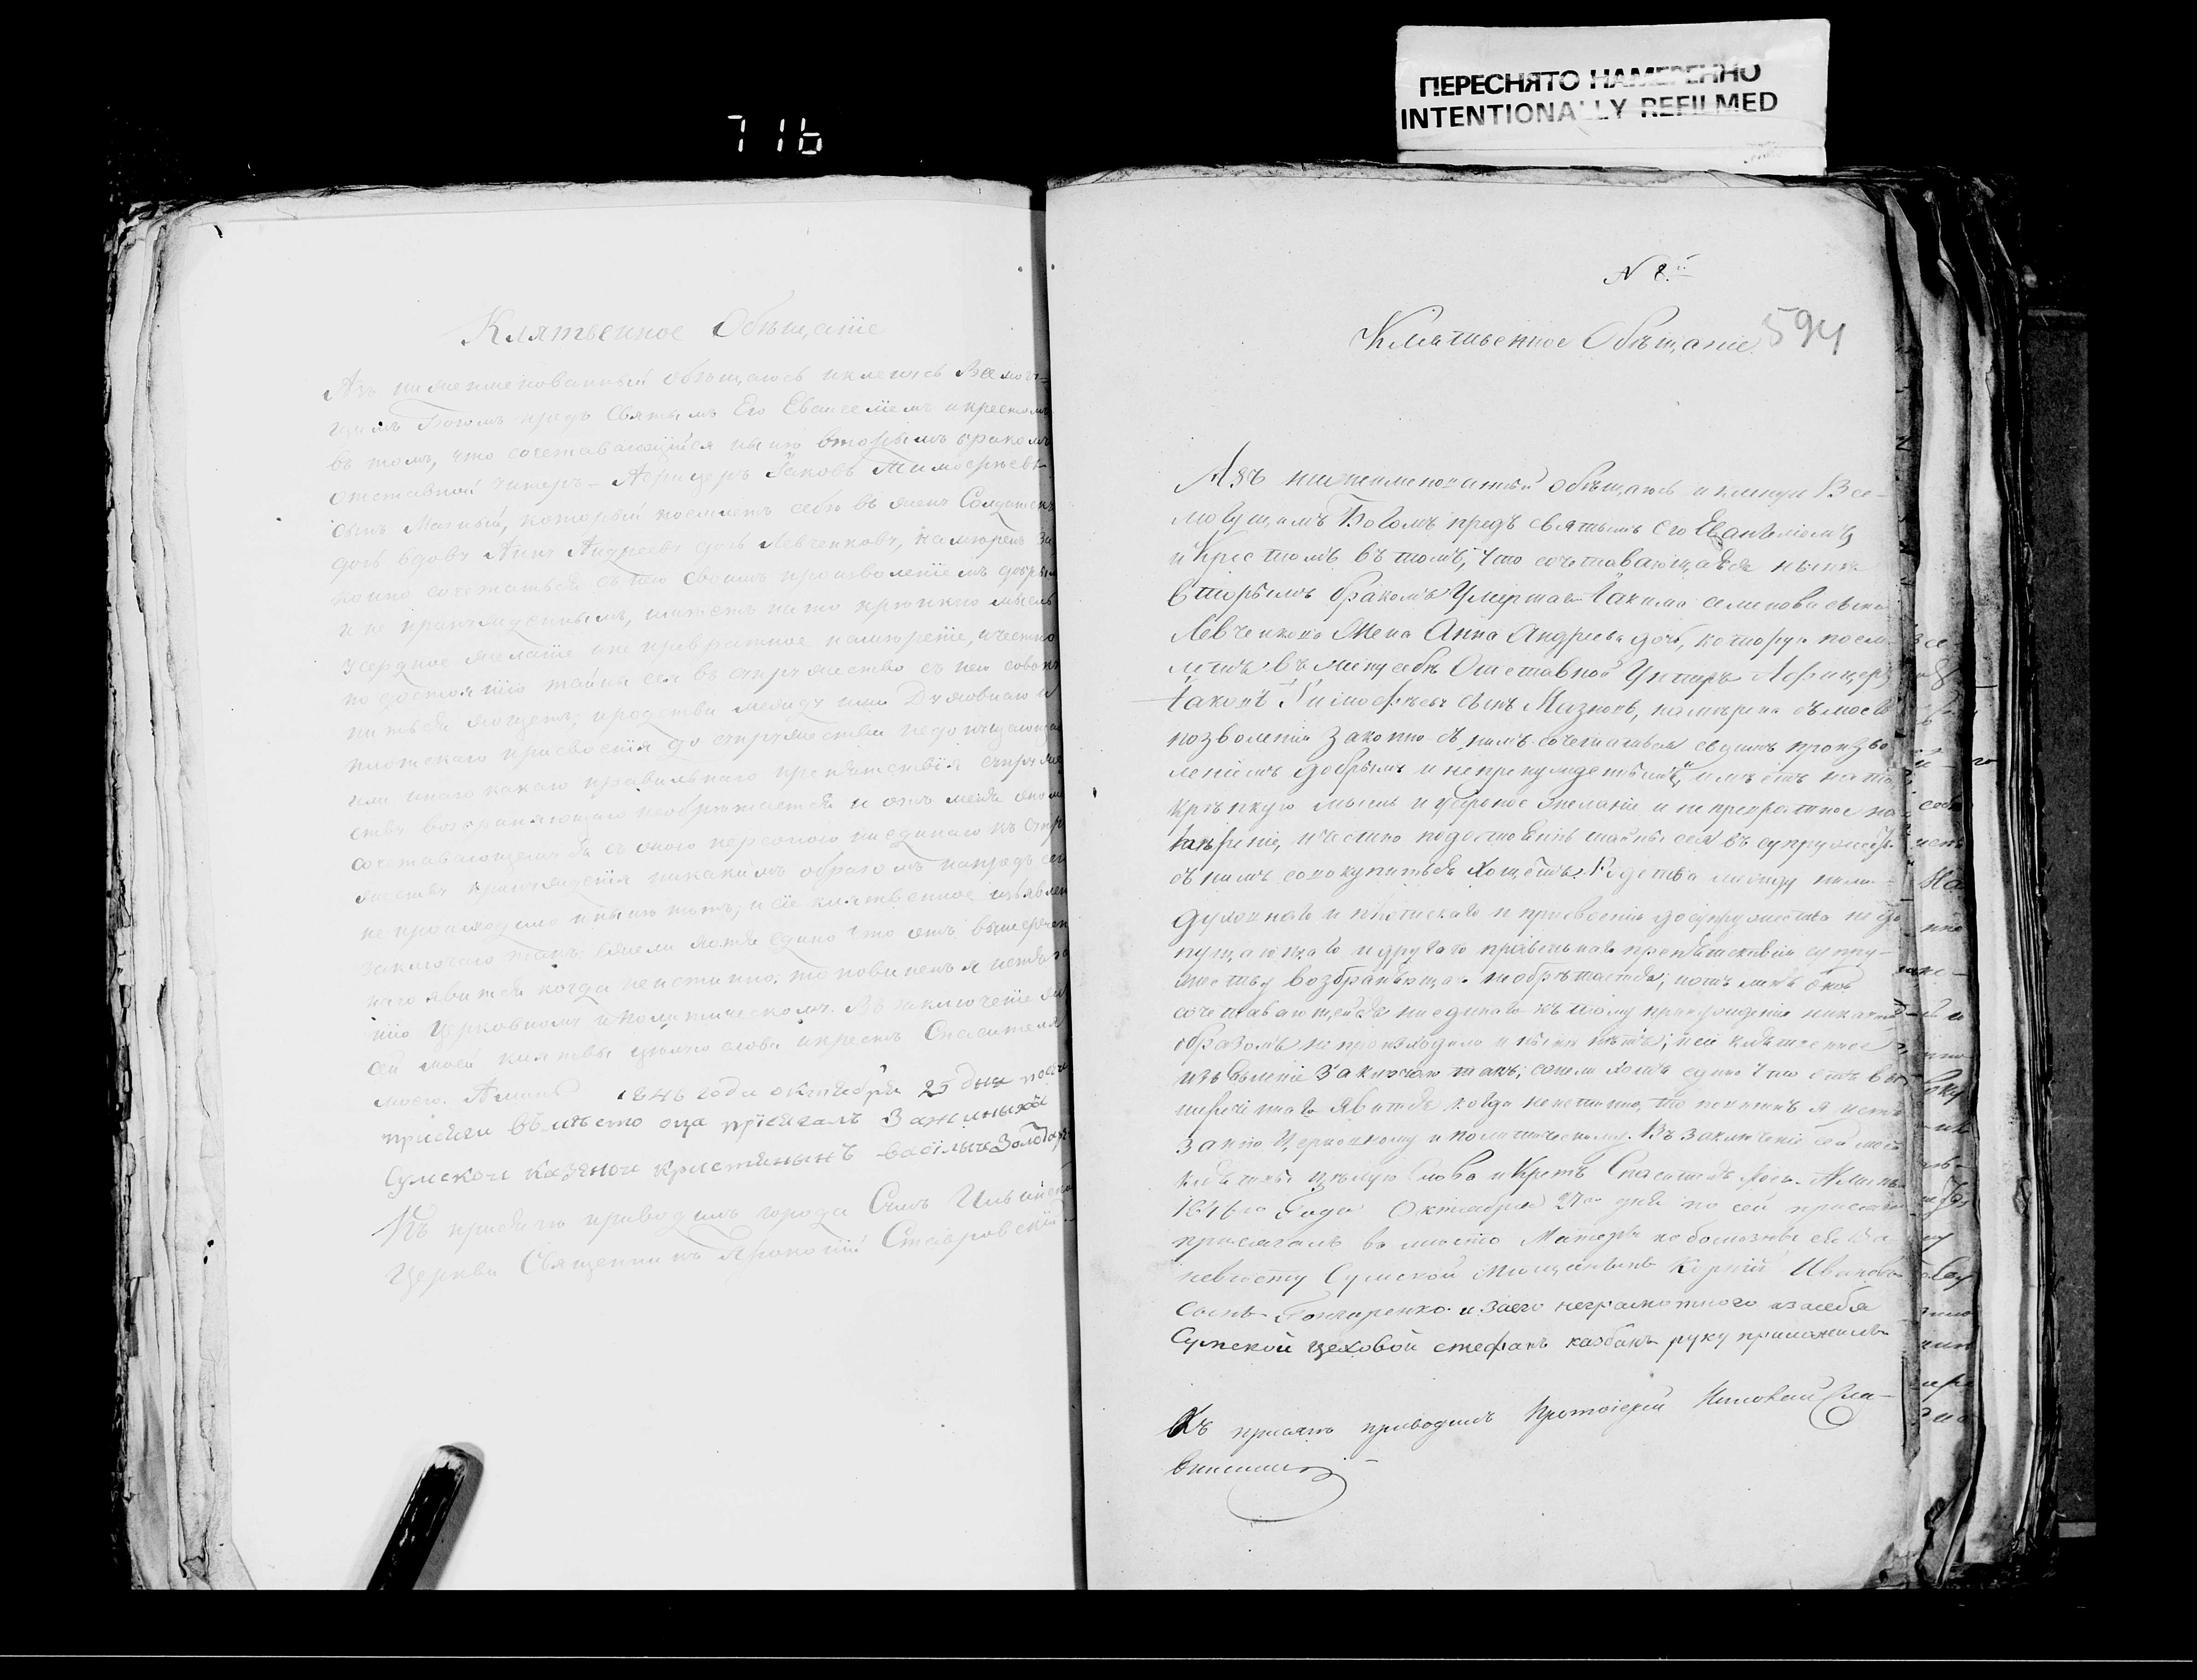 716
ПЕРЕСНЯТО НАМЕРЕННО
INTENTIONALLY REFILMED
Клятвенное Обѣщаніе
Азъ нижеименованный обѣщаюсь и клянусь Всемогу-
щимъ Богомъ предъ Святымъ Его Евангеліемъ и крестомъ
въ томъ, что сочетавающійся нынѣ вторымъ бракомъ
отставной Унтеръ-Афицеръ Іаковъ Тимофѣевъ
сынъ Мазный, который поемлетъ себѣ въ жену Солдатску
дочь вдову Анну Андрееву дочь Левченкову, намѣренъ За
конно сочетаться съ нею своимъ произволеніемъ добрымъ
и не принужденнымъ, имѣетъ на то крѣпкую мысль
усердное желаніе и не превратное намѣреніе, и честно
по достоянію тайны сея въ супружество съ нею совоку
питься хощетъ; сродства между ими Духовнаго и
плотскаго присвоенія до супружества недопущающаго
или инаго какаго правильнаго препятствія супруже
ству возбраняющаго необрѣтается и отъ мене оном
сочетавающемуся съ оною персоною ни единаго къ супр
жеству принужденія никакимъ образомъ напредъ сего
не происходило и нынѣ нѣтъ; и сіе клятвенное изъявлен
заключаю такъ: ежели хотя едино что отъ вышеречен
наго явится когда неистинно: то повиненъ я истяза
нію Церковному и политическому. Въ заключеніе же
сей моей клятвы цѣлую слова и крестъ Спасителя
моего. Аминь 1846 года октября 25 дня по сей
присяги вмѣсто оца присягалъ За жениха
Сумской казеной крестянынъ василь Золотар
Къ присягѣ приводилъ города Сумъ Ильинской
Церкви Священникъ Прокопій Ставровскій
N 8й
Клятвенное Обѣщаніе 594
Азъ нижеименованный обѣщаюсь и клянусь Все-
могущимъ Богомъ предъ святымъ Его Евангеліемъ
и Крестомъ въ томъ, что сочетавающаяся нынѣ
вторымъ бракомъ Умершаго Іакима семенова сына
Левченкова Жена Анна Андреева дочь, которую поем-
летъ въ жену себѣ Отставной Унтеръ Афицеръ
Іаковъ Тимофѣевъ сынъ Мазновъ, намѣрена съ моего
позволенія законно съ нимъ сочетаваться своимъ произво
леніемъ добрымъ и непринужденнымъ, имѣетъ на то
крѣпкую мысль и усердное желаніе и не превратное на
мѣреніе, и честно подостоянію тайны сея въ супружество
съ нимъ совокупиться хощетъ. Родства между ними
духовнаго и плотскаго и присвоенія до супружества недо
пущающаго и другаго правильнаго препятствія супру-
жеству возбраняюща. необрѣтается; и отъ мене оной
сочетавающейся ни единаго къ тому принужденія никакимъ
образомъ не происходило и нынѣ нѣтъ; и сіе клятвенное
изъявленіе заключаю такъ; ежели хотя едино что отъ вы
шереченнаго явится когда неистинно, то повиненъ я истя
занію Церковному и политическому. Въ заключеніе сей моей
клятвы цѣлую Слова и Крестъ Спасителя моего. Аминь
1846го Года Октября 27го дня по сей присягѣ
присягалъ во мѣсто Матеры по болезны ея За
невѣсту Сумской Мищанинъ Корній Ивановъ
Сынъ Гончаренко и заего неграмотного изасебя
Сумской цеховой стефанъ казбанъ руку приложилъ
Къ присягѣ приводилъ Протоіерей Николай Сла-